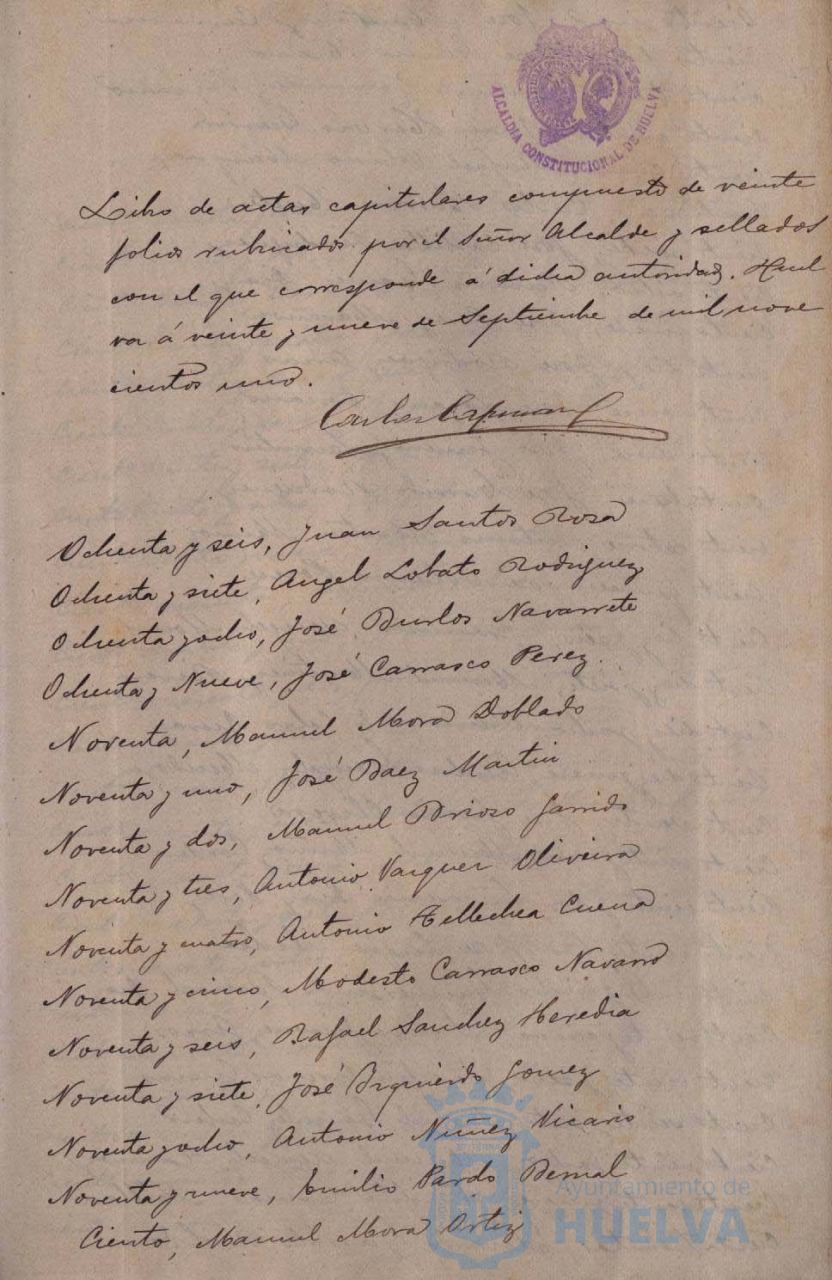 ALCALDIA CONSTITUCIONAL DE HUELVA
Libro de actas capitulares compuesto de veinte
folios rubricados por el Señor Alcalde y sellados
con el que corresponde á dicha autoridad. Huel
va á veinte y nueve de Septiembre de mil nove
cientos uno.
Carlos
Ochenta y seis, Juan Santos Rosa
Ochenta y siete, Angel Lobato Rodriguez
Ochenta y ocho, José Burlos Navarrete
Ochenta y Nueve, José Carrasco Perez
Noventa, Manuel Mora Doblado
Noventa y uno, José Baez Martin
Noventa y dos, Manuel Brioso Garrido
Noventa y tres, Antonio Vazquez Oliveira
Noventa y cuatro, Antonio Tellechea Cuena
Noventa y cinco, Modesto Carrasco Navarro
Noventa y seis, Rafael Sanchez Heredia
Noventa y siete, José Izquierdo Gomez
Noventa y ocho, Antonio Nuñez Vicario
Noventa y nueve, Emilio Pardo Bernal
Ciento, Manuel Mora Ortiz
Ayuntamiento de
HUELVA